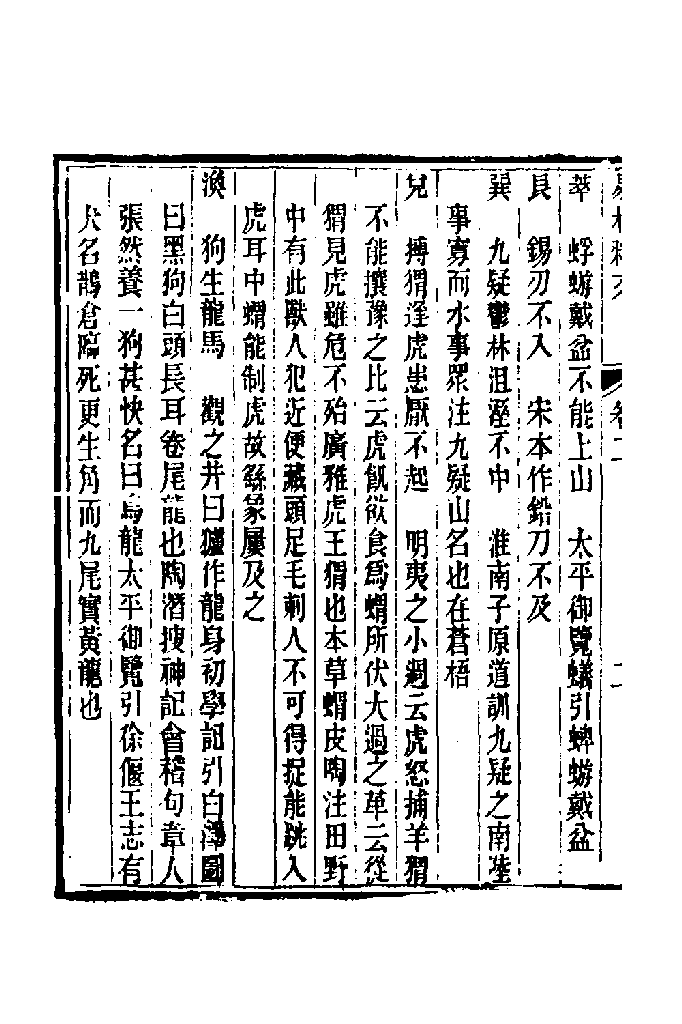 卷二
二
萃　蜉蝣戴盆不能上山　太平御覽蟻引蜱蝣戴盆
艮　錫刃不入　宋本作鉛刀不及
巽　九疑鬱林沮溼不中　淮南子原道訓九疑之南陸
事寡而水事眾注九疑山名也在蒼梧
兌　搏猬逢虎患厭不起　明夷之小過云虎怒捕羊猬
不能攘豫之比云虎飢欲食為蝟所伏大過之革云從
猬見虎雖危不殆廣雅虎王猬也本草蝟皮陶注田野
中有此獸人犯近便藏頭足毛刺人不可得捉能跳入
虎耳中蝟能制虎故繇象屢及之
渙　狗生龍馬　觀之井曰獹作龍身初學記引白澤圖
曰黑狗白頭長耳卷尾龍也陶潛搜神記會稽句章人
張然養一狗甚快名曰烏龍太平御覽引徐偃王志有
犬名鵠倉臨死更生角而九尾實黃龍也